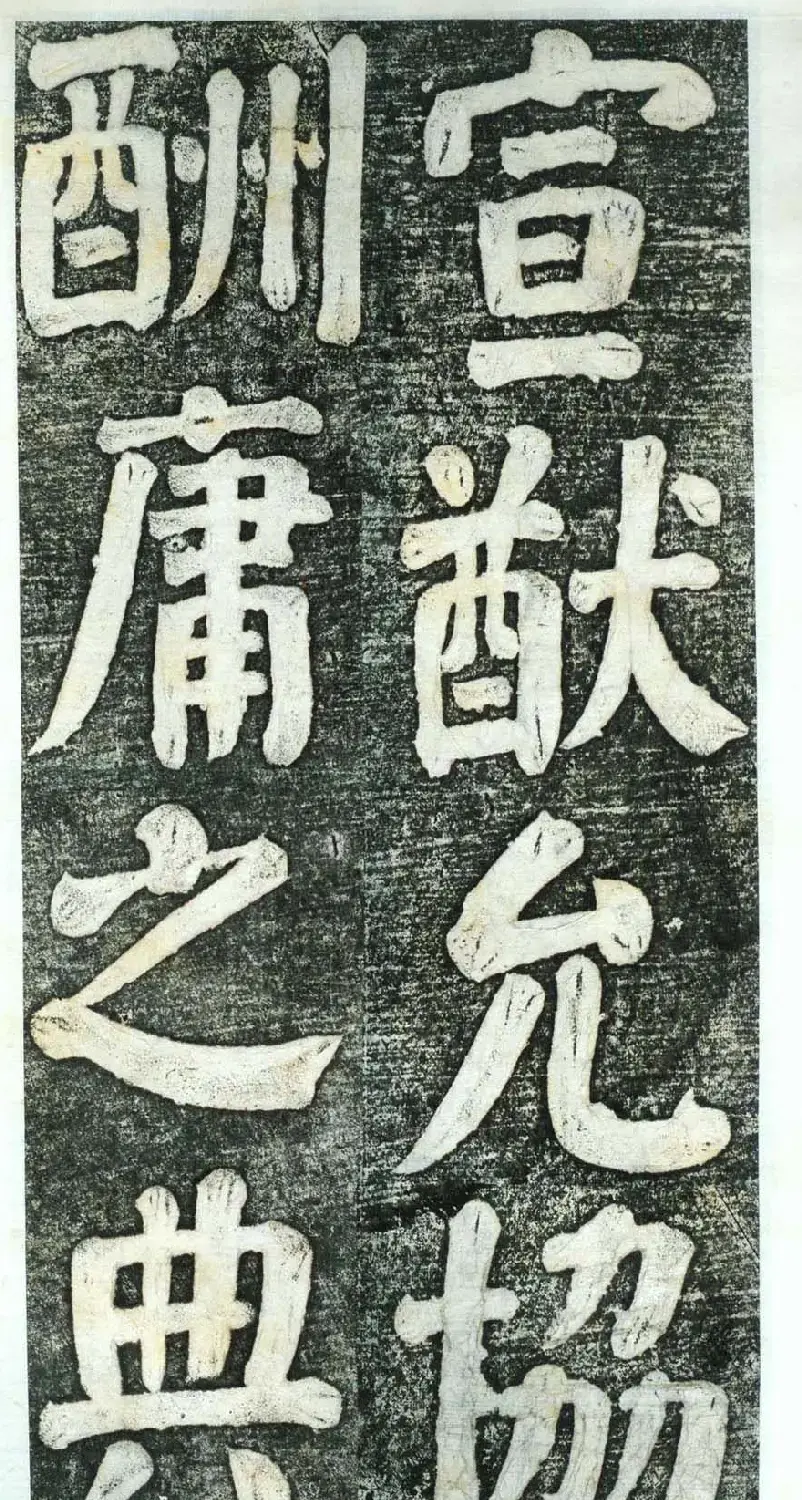 宣猷允協
酬庸之典